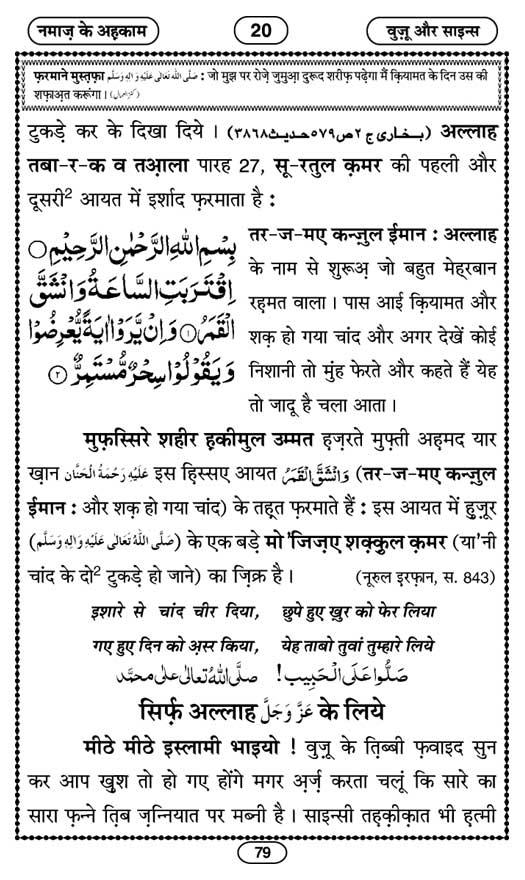 नमाज़ के अहकाम
20
वुज़ू और साइन्स
फ़रमाने मुस्तफ़ा صَلَّى اللهُ تَعَالٰى عَلَيْهِ وَاٰلِهٖ وَسَلَّم : जो मुझ पर रोज़े जुमुआ़ दुरूद शरीफ़ पढ़ेगा मैं क़ियामत के दिन उस की
शफ़ाअ़त करूंगा । (کنزالعمال)
टुकड़े कर के दिखा दिये । (بخاری ج ۲ ص ۵۷۹ حدیث ۳۸۶۸) अल्लाह
तबा-र-क व तआ़ला पारह 27, सू-रतुल क़मर की पहली और
दूसरी² आयत में इर्शाद फ़रमाता है :
بِسْمِ اللهِ الرَّحْمٰنِ الرَّحِيْمِ ۝
اِقْتَرَبَتِ السَّاعَةُ وَانْشَقَّ
الْقَمَرُ ۝۱ وَاِنْ يَّرَوْا اٰيَةً يُّعْرِضُوْا
وَيَقُوْلُوْا سِحْرٌ مُّسْتَمِرٌّ ۝۲
तर-ज-मए कन्ज़ुल ईमान : अल्लाह
के नाम से शुरूअ़ जो बहुत मेह़रबान
रह़मत वाला । पास आई क़ियामत और
शक़ हो गया चांद और अगर देखें कोई
निशानी तो मुंह फेरते और कहते हैं येह
तो जादू है चला आता ।
मुफ़स्सिरे शहीर ह़कीमुल उम्मत ह़ज़रते मुफ़्ती अह़मद यार
ख़ान عَلَيْهِ رَحْمَةُ الْحَنَّان इस हि़स्सए आयत وَانْشَقَّ الْقَمَرُ (तर-ज-मए कन्ज़ुल
ईमान : और शक़ हो गया चांद) के तह़्त फ़रमाते हैं : इस आयत में हु़ज़ूर
(صَلَّى اللهُ تَعَالٰى عَلَيْهِ وَاٰلِهٖ وَسَلَّم) के एक बड़े मो'जिज़ए शक़्क़ुल क़मर (या'नी
चांद के दो² टुकड़े हो जाने) का ज़िक्र है । (नूरुल इरफ़ान, स. 843)
इशारे से चांद चीर दिया, छुपे हुए ख़ुर को फेर लिया
गए हुए दिन को अ़स्र किया, येह ताबो तुवां तुम्हारे लिये
صَلُّوْا عَلَى الْحَبِيْب! صَلَّى اللهُ تَعَالٰى عَلٰى مُحَمَّد
सिर्फ़ अल्लाह عَزَّ وَجَلَّ के लिये
मीठे मीठे इस्लामी भाइयो ! वुज़ू के ति़ब्बी फ़वाइद सुन
कर आप ख़ुश तो हो गए होंगे मगर अ़र्ज़ करता चलूं कि सारे का
सारा फ़न्ने ति़ब ज़न्नियात पर मब्नी है । साइन्सी तह़क़ीक़ात भी ह़त्मी
79